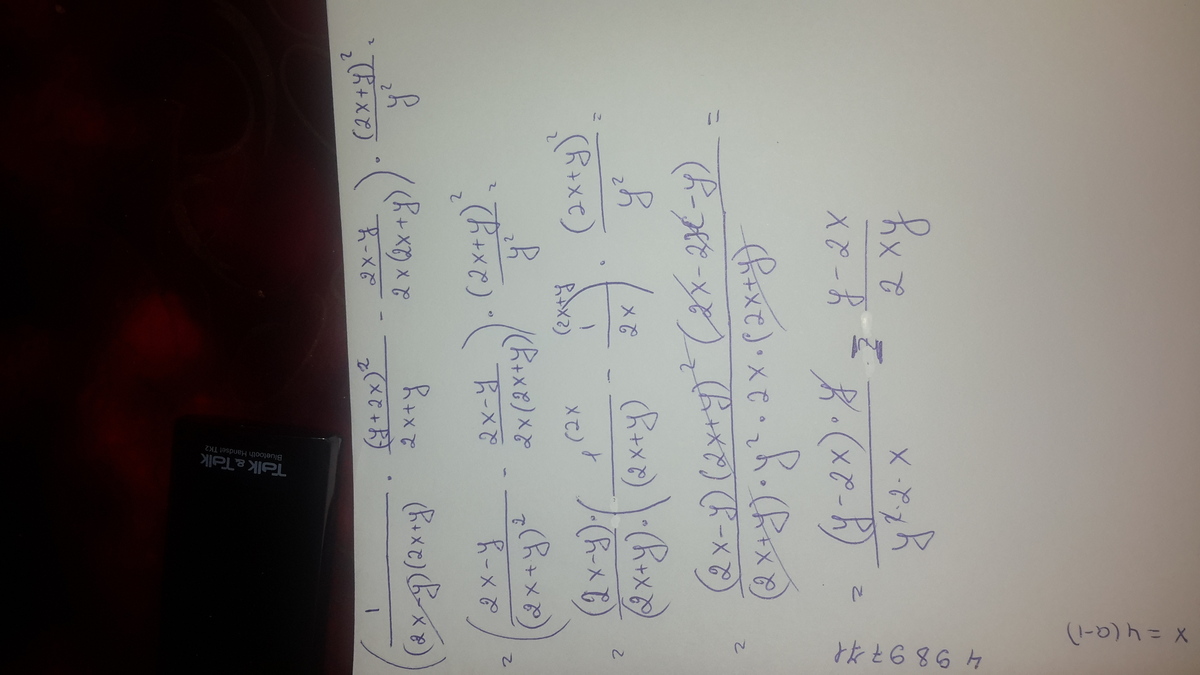 (1/((2x-y)(2x+y)) · (y+2x)²/(2x+y) - (2x-y)/(2x(2x+y))) · (2x+y)²/y² =
= ((2x-y)/(2x+y)² - (2x-y)/(2x(2x+y))) · (2x+y)²/y² =
= (2x-y)/(2x+y) · (1(2x/(2x+y) - 1(2x+y/2x) · (2x+y)²/y² =
= (2x-y)(2x+y)²(2x-2x-y)/((2x+y)·y²·2x·(2x+y)) =
= (y-2x)·y/(y²·2·x) = (y-2x)/(2xy)
498971
x = 4(a-1)
Talk & Talk
Bluetooth Handset TK2